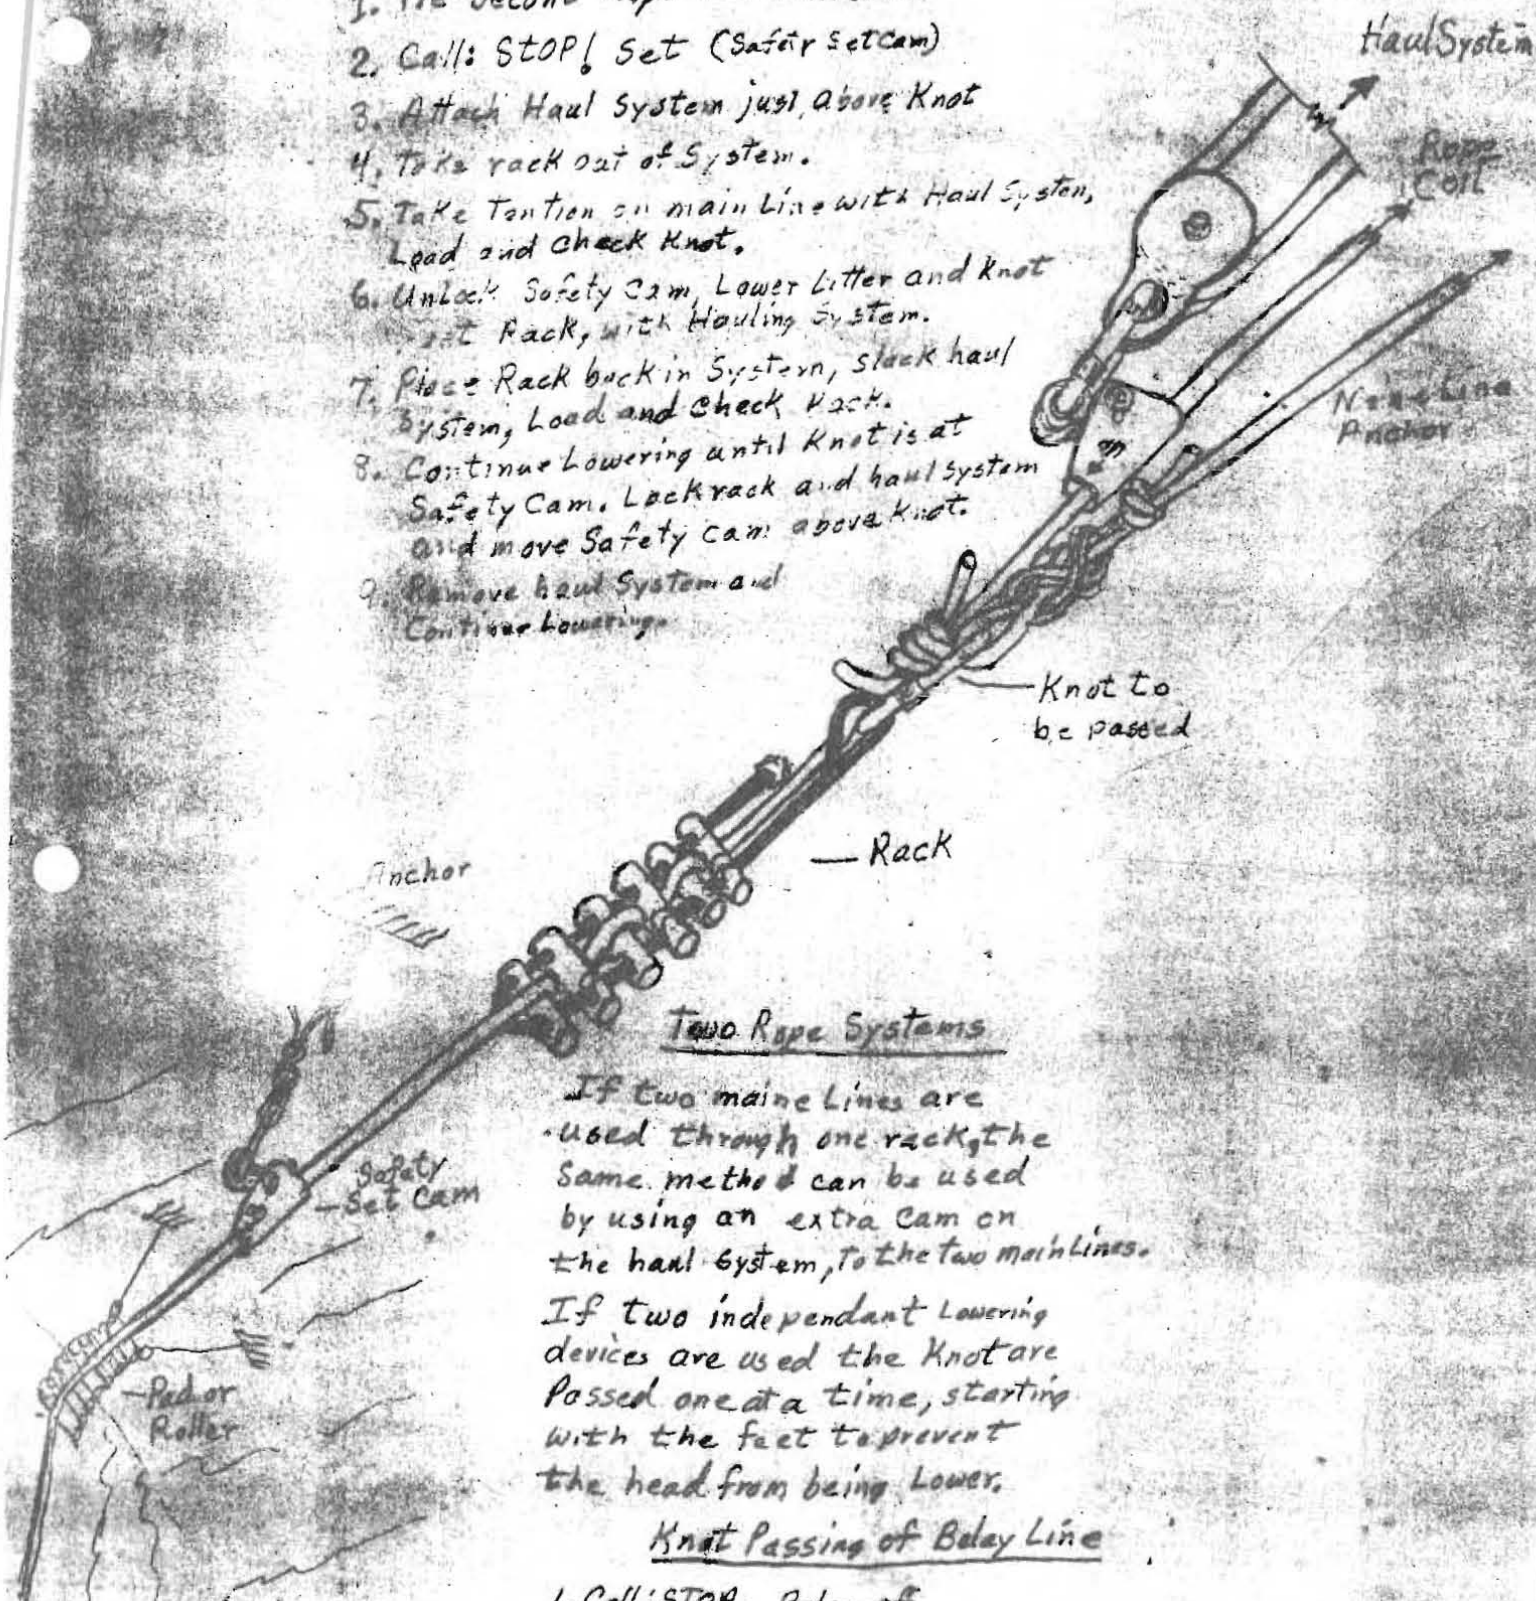 2. Call: STOP! Set (Safety Set Cam)
3. Attach Haul System just above Knot
4. Take rack out of System.
5. Take Tention on main Line with Haul System,
Load and Check Knot.
6. Unlock Safety Cam, Lower Litter and Knot
Rack, with Hauling System.
7. Place Rack back in System, slack haul
System, Load and Check Rack.
8. Continue Lowering until Knot is at
Safety Cam. Lock rack and haul system
and move Safety Cam above Knot.
9. Remove haul System and
Continue Lowering.
Haul System
Rope
Coil
Line
Anchor
Knot to
be passed
Rack
Anchor
Safety
Set Cam
Pad or
Roller
Two Rope Systems
If two maine Lines are
used through one rack, the
Same method can be used
by using an extra Cam on
the haul System, To the Two main Lines.
If two independant Lowering
devices are used the Knot are
Passed one at a time, starting
with the feet to prevent
the head from being Lower.
Knot Passing of Belay Line
1. Call: STOP